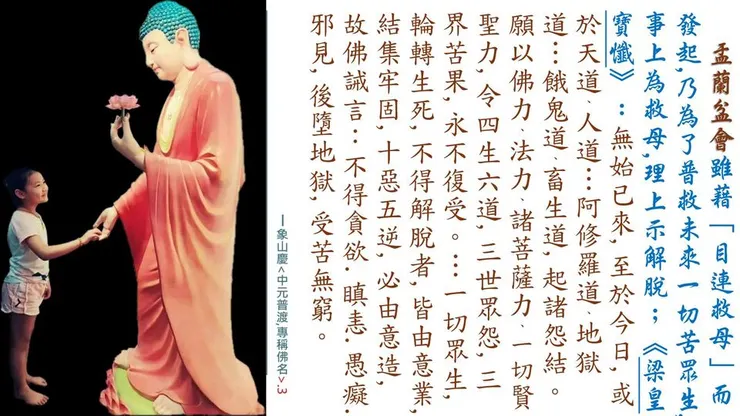 盂蘭盆會雖藉「目連救母」而
發起,乃為了普救未來一切苦眾生
事上為救母,理上示解脫；《梁皇
寶懺》：無始已來,至於今日,或
於天道、人道…阿修羅道、地獄
道…餓鬼道、畜生道,起諸怨結。
願以佛力、法力、諸菩薩力、一切賢
聖力,令四生六道,三世眾怨,三
界苦果,永不復受。…一切眾生,
輪轉生死,不得解脫者,皆由意業,
結集牢固,十惡五逆,必由意造,
故佛誡言：不得貪欲.瞋恚.愚癡.
邪見,後墮地獄,受苦無窮。
—象山慶<中元普渡,專稱佛名>.3